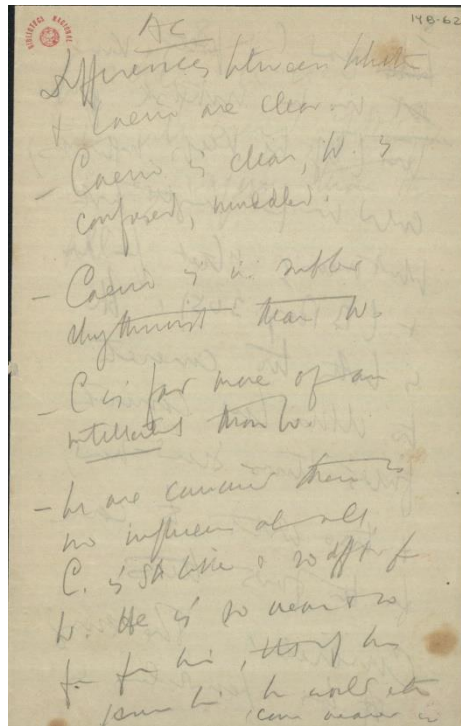 BIBLIOTECA NACIONAL
14B-62
AC
Differences between Whitman
& Caeiro are clear.
- Caeiro is clear, W. is
confused, muddled.
- Caeiro is a subtler
rhythmist than W.
- C is far more of an
intellectual than W.
- In are cases there is
no influence at all.
C. is so like & so diff. fr
W. He is so near & so
far fr him, that if he
he would
come nearer